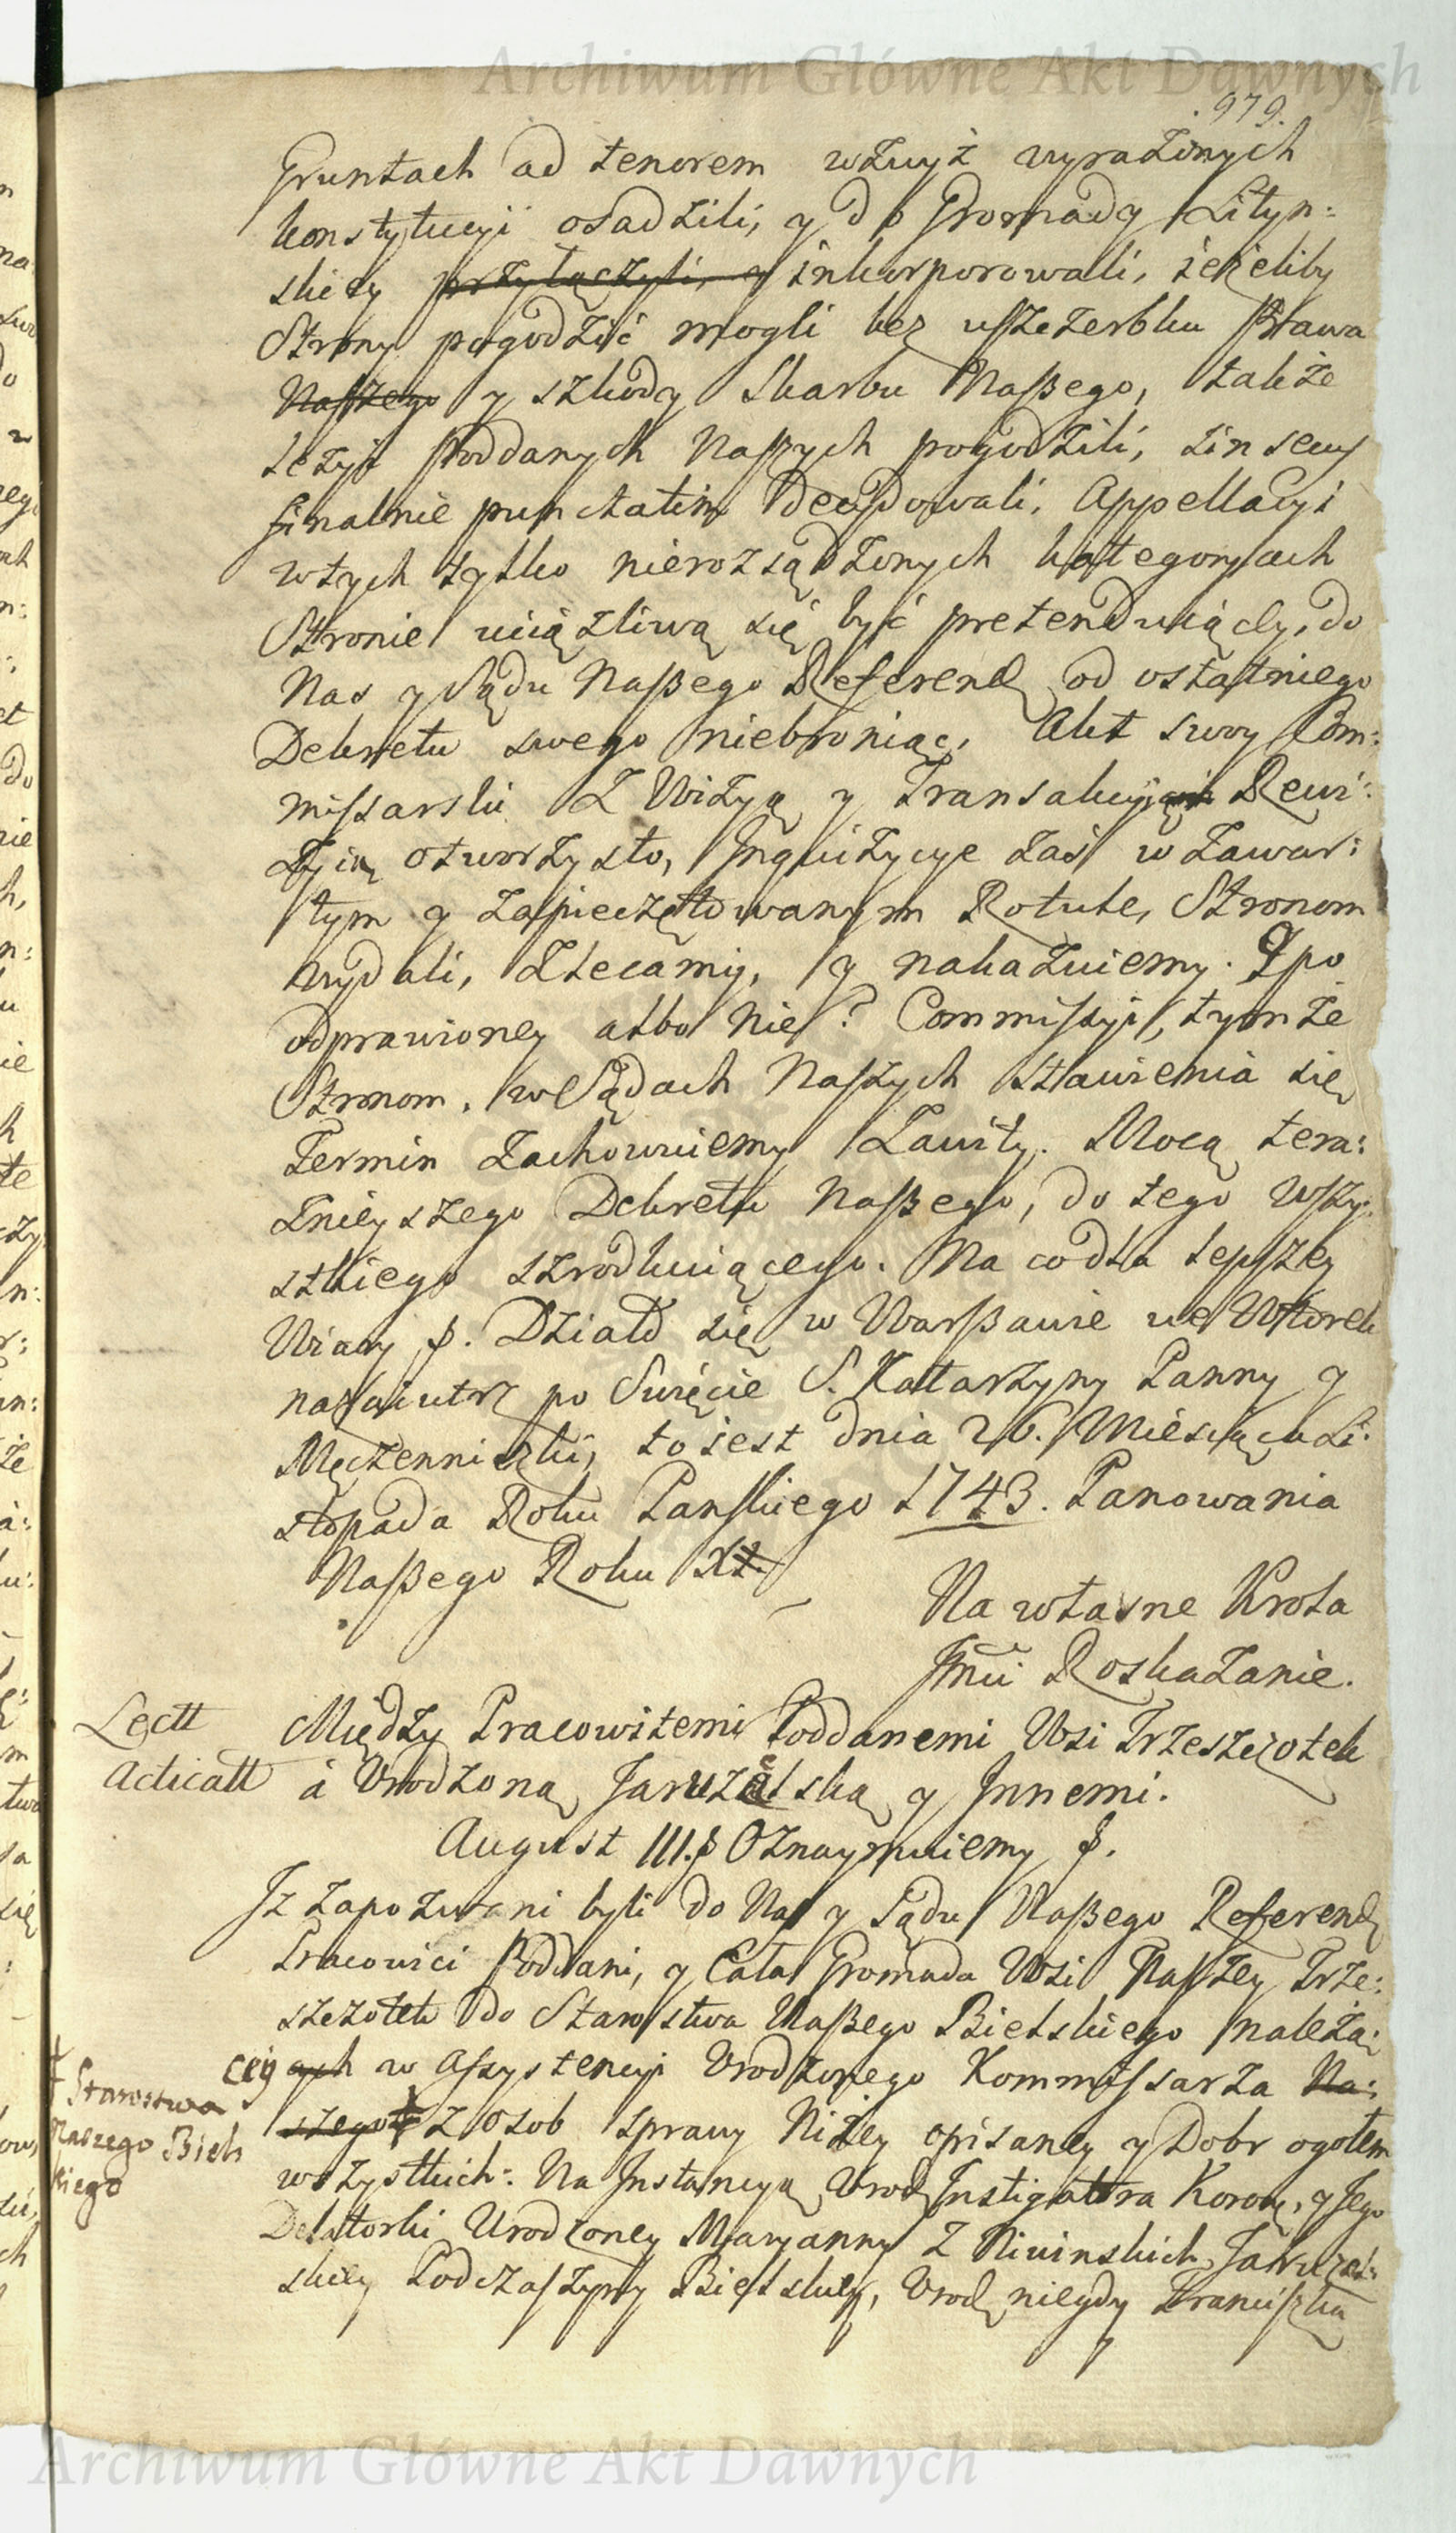 Archiwum Główne Akt Dawnych
979.
Gruntach ad tenorem wzwyż wyrażonych
konstytucyi osadzili, y do Gromady Lityn:
skiey przyłączyli, y inkorporowali, ieżeliby
Strony pogodzić mogli bez uszczerbku Prawa
Naszego y szkody Skarbu Naßego, także
tezyż Poddanych Naszych pogodzili, sin secus
finalnie punctatim decydowali, Appellacyi
w tych tylko nierozsądzonych kategoryach
Stronie uciążliwą się być pretenduiącey, do
Nas y Sądu Naßego Referend od ostatniego
Dekretu swego niebroniąc, Akt swoy Com:
missarski z Wizyą y Transakcyią Rewi:
zyią otworzysto, Inquizycye zaś w zawar:
tym y zapieczętowanym Rotule, Stronom
wydali, zlecamy, y nakazuiemy. Y po
odprawioney albo nie? Commissyi, tymże
Stronom, w Sądach Naszych stawienia się
Termin zachowuiemy Zawity. Mocą tera:
znieyszego Dekretu Naßego, do tego wszy:
stkiego szrodkuiącego. Na co dla lepszey
Wiary p. Działo się w Warßawie we Wtorek
nazaiutrz po Swięcie S. Katarzyny Panny y
Męczenniczki, to iest dnia 26. Miesiąca Li:
stopada Roku Pańskiego 1743. Panowania
Naßego Roku XI.
Na własne Krola
Jmći Roskazanie.
Lectt
Acticatt
Między Pracowitemi Poddanemi Wsi Trzeszczotek
á Urodzoną Jaruzelską y Innemi.
August III. p Oznaymuiemy p.
Iż zapozwani byli do Nas y Sądu Naßego Referend
Pracowici Poddani, y Cała Gromada Wsi Naszey Trze:
szczotek do Starostwa Naßego Bielskiego należą:
cey ych w Assystencyi Urodzonego Kommissarza Na:
szego † z osob sprawy niżey opisaney y Dobr ogołem
† Starostwa
naszego Biels
kiego
wszystkich: Na Instancyą Urod Instigatora Koron, y Jego
Delatorki Urodzoney Maryanny z Niwinskich Jaruzel:
skiey Podczaszyny Bielskiey, Urod niegdy Franciszka
Archiwum Główne Akt Dawnych